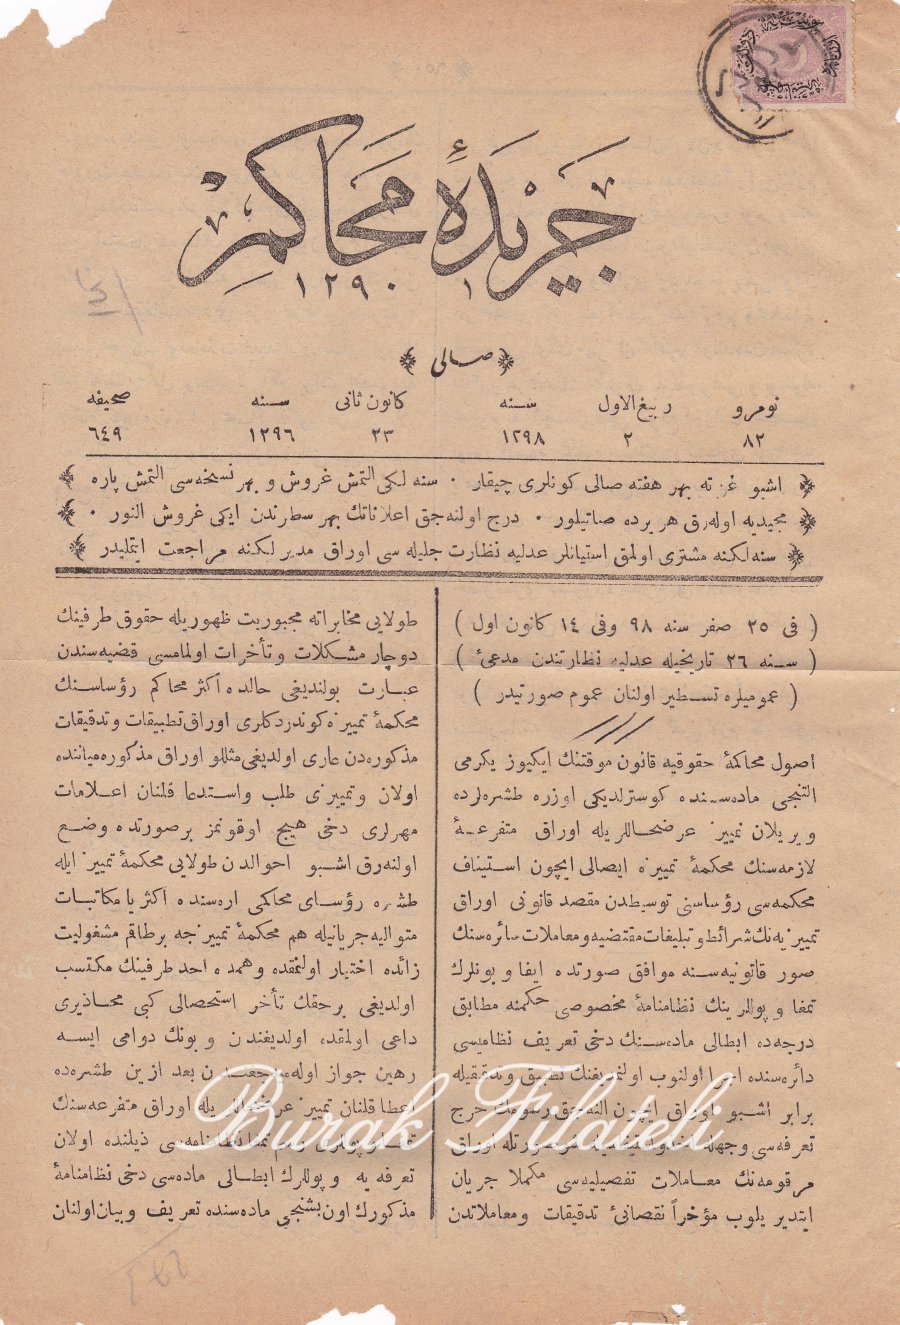 جریدهٔ محاکم
١٢٩٠
صالی
نومرو ربیع الاول سنه کانون ثانی سنه صحیفه
٨٢ ٢ ١٢٩٨ ٢٣ ١٢٩٦ ٦٤٩
اشبو غزته بهر هفته صالی کونلری چیقار ٠ سنه لکی التمش غروش و بهر نسخه‌سی التمش پاره
مجیدیه اوله‌رق هر یرده صاتیلور ٠ درج اولنه‌جق اعلاناتك بهر سطرندن ایکی غروش النور ٠
سنه لکنه مشتری اولمق استیانلر عدلیه نظارت جلیله سی اوراق مدیرلکنه مراجعت ایتملیدر
( فی ٢٥ صفر سنه ٩٨ وفی ١٤ کانون اول )
( سنه ٢٦ تاریخیله عدلیه نظارتندن مدعیٔ )
( عمومیلره تسطیر اولنان عموم صورتیدر )
اصول محاکمهٔ حقوقیه قانون موقتنك ایکیوز یکرمی
التنجی ماده‌سنده کوسترلدیکی اوزره طشره‌لرده
ویریلان تمییز عرضحاللریله اوراق متفرعهٔ
لازمه‌سنك محکمهٔ تمییزه ایصالی ایچون استیناف
محکمه‌سی رؤساسنی توسیطدن مقصد قانونی اوراق
تمییزیه‌نك شرائط وتبلیغات مقتضیه ومعاملات سائره‌سنك
صور قانونیه‌سنه موافق صورتده ایفا و بونلرك
تمغا و پوللرینك نظامنامهٔ مخصوصی حکمنه مطابق
درجه‌ده ابطالی ماده‌سنك دخی تعریف نظامیسی
دائره‌سنده اجرا اولنوب اولنمدیغنك تطبیق وتدقیقیله
برابر اشبو اوراق ایچون النه‌جق رسومك خرج
تعرفه‌سی وجهله
مرقومه‌نك معاملات تفصیلیه‌سی مکملا جریان
ایتدیریلوب مؤخراً نقصانیٔ تدقیقات ومعاملاتدن
طولایی مخابراته مجبوریت ظهوریله حقوق طرفینك
دوچار مشکلات وتأخرات اولمامسی قضیه‌سندن
عبارت بولندیغی حالده اکثر محاکم رؤساسنك
محکمهٔ تمییزه کوندردکلری اوراق تطبیقات وتدقیقات
مذکوره‌دن عاری اولدیغی مثللو اوراق مذکوره‌میاننده
اولان وتمییزی طلب واستدعا قلنان اعلامات
مهرلری دخی هیچ اوقونمز برصورتده وضع
اولنه‌رق اشبو احوالدن طولایی محکمهٔ تمییز ایله
طشره رؤسای محاکمی اره‌سنده اکثریا مکاتبات
متوالیه جریانیله هم محکمهٔ تمییزجه برطاقم مشغولیت
زائده اختیار اولنمقده وهمده احد طرفینك مکتسب
اولدیغی برحقك تأخر استحصالی کبی محاذیری
داعی اولمقده اولدیغندن و بونك دوامی ایسه
رهین جواز اوله‌میه‌جغندن بعد ازین طشره‌ده
اعطا قلنان تمییز عرضحاللریله اوراق متفرعه‌سنك
ذیلنده اولان
تعرفه یه و پوللرك ابطالی ماده‌سی دخی نظامنامهٔ
مذکورك اون بشنجی ماده‌سنده تعریف وبیان اولنان
Burak Filateli